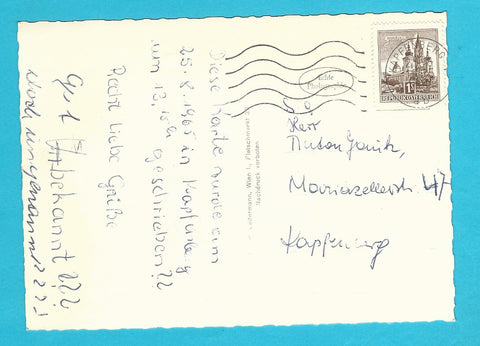 Diese Karte wurde am
25.8.1965 in Kapfenberg
um 13,15h geschrieben??
Recht liebe Grüße
Gut bekannt???
Noch ungenannt????
Echte
Photographie
Wien
Nachdruck verboten
KAPFENBERG
REPUBLIK ÖSTERREICH
Herr
Anton
Mariazellerstr. 47
Kapfenberg